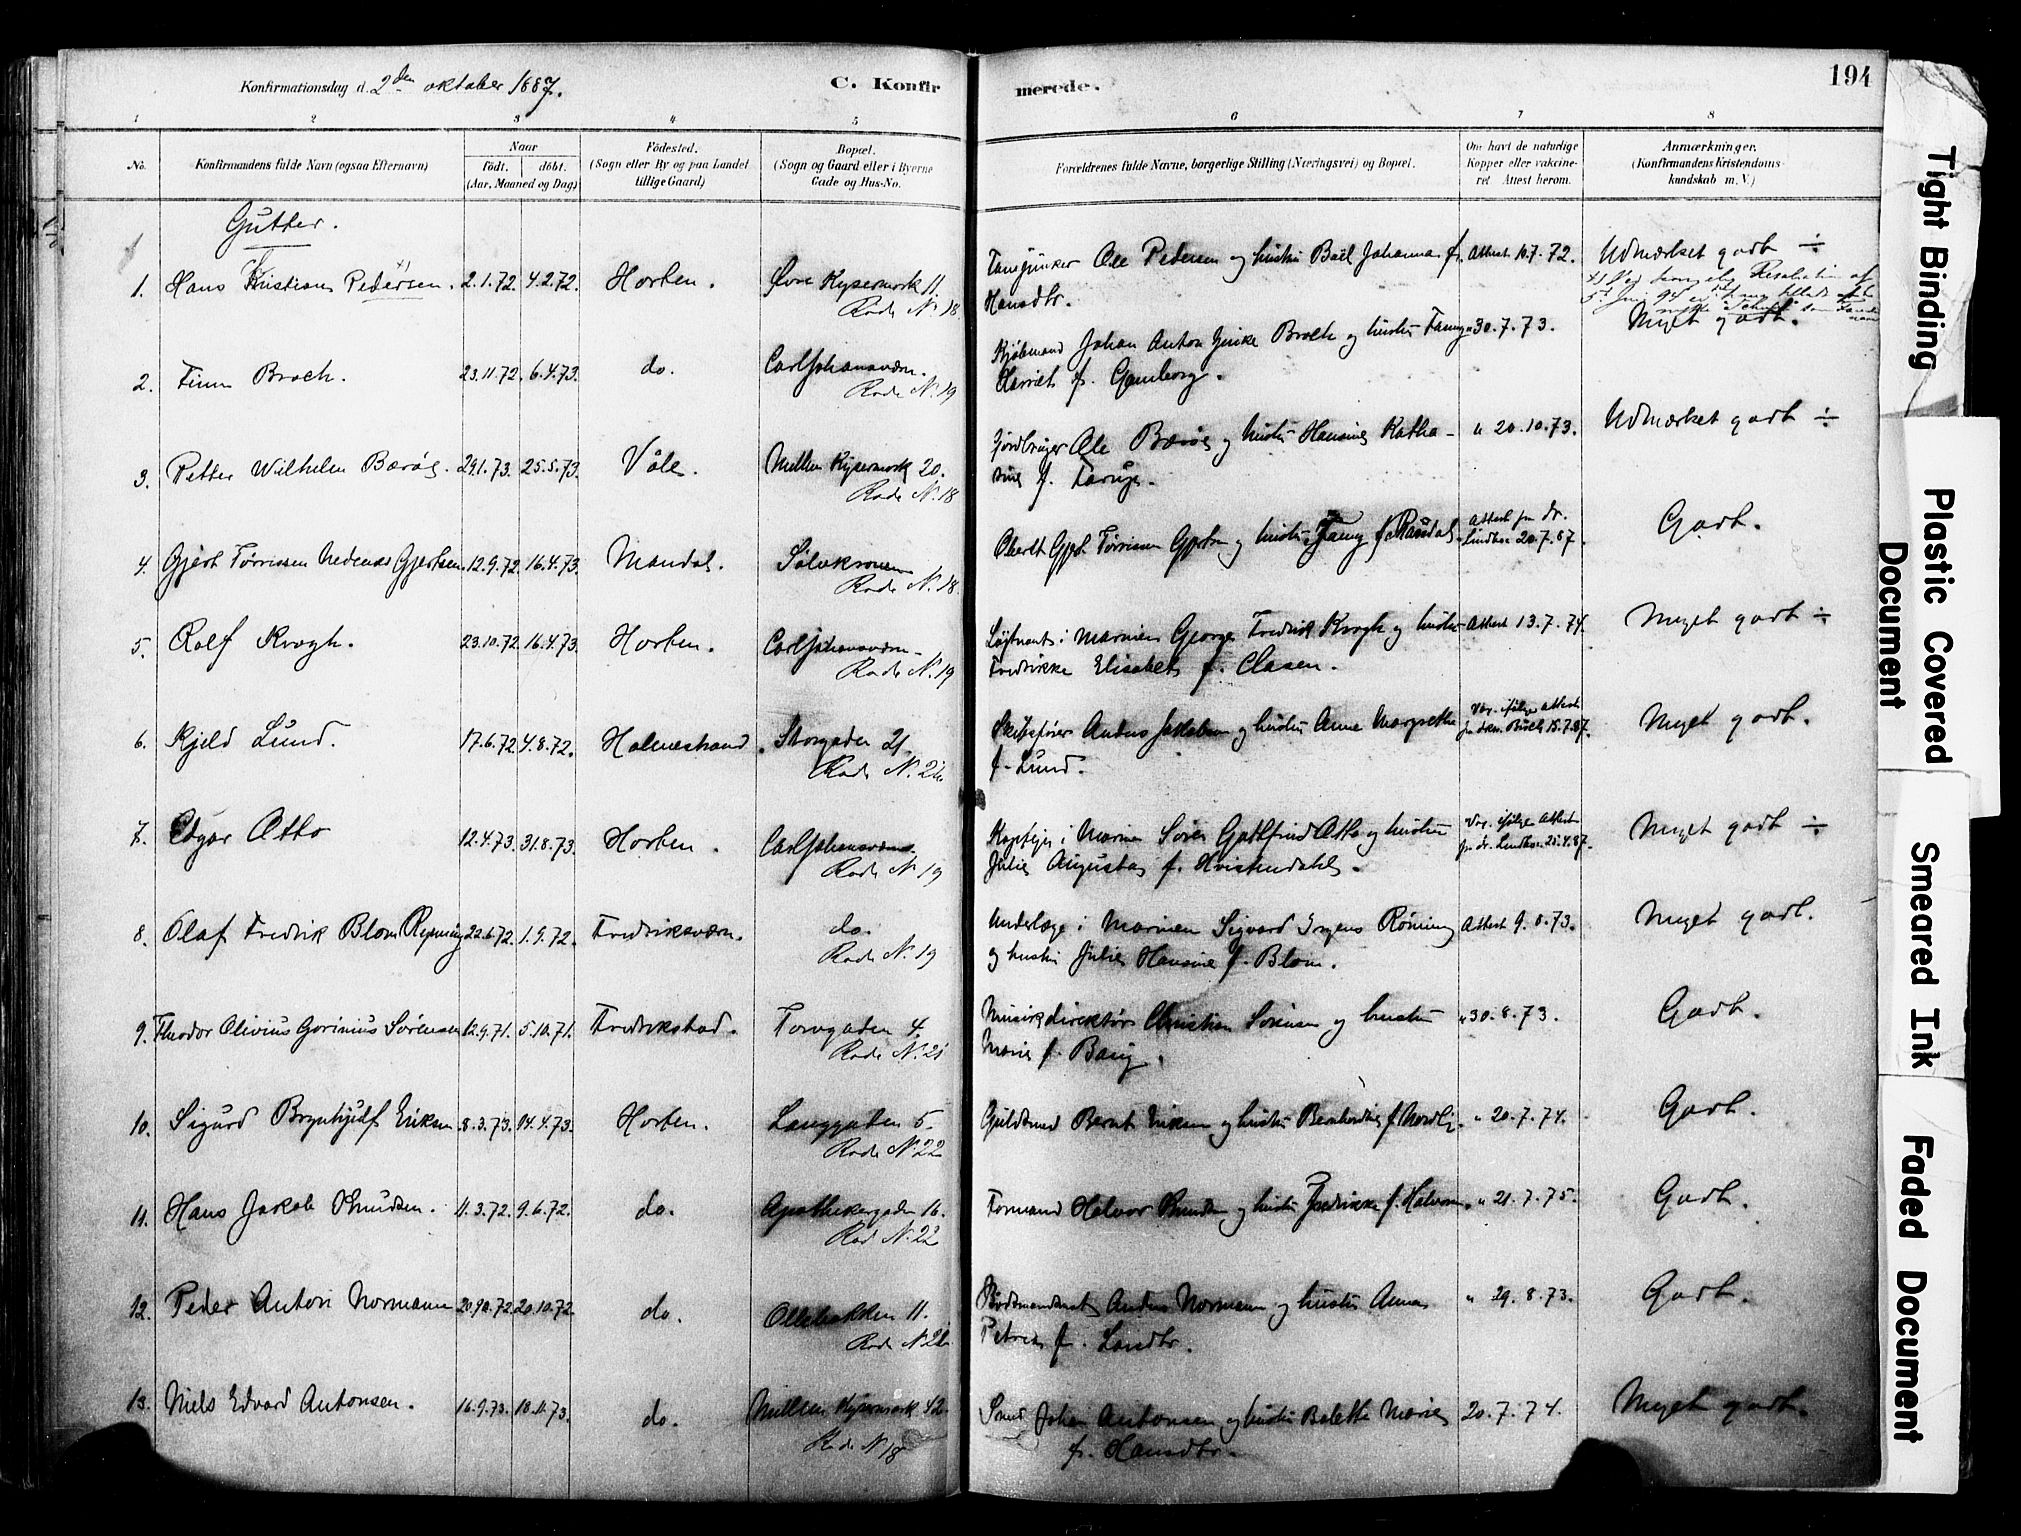 Konfirmationsdag d. 2den oktober 1887.
C. Konfirmerede.
194
1 2 3 4 5 6 7 8
No.
Konfirmandens fulde Navn (ogsaa Efternavn)
Naar
født. døbt.
(Aar, Maaned og Dag)
Fødested.
(Sogn eller By og paa Landet
tillige Gaard)
Bopæl.
(Sogn og Gaard eller i Byerne
Gade og Hus-No.
Forældrenes fulde Navne, borgerlige Stilling (Næringsvei) og Bopæl.
Om havt de naturlige
Kopper eller vakcine-
ret Attest herom.
Anmærkninger.
(Konfirmandens Kristendoms-
kundskab m. V.)
Gutter.
1. Hans Kristian Pedersen. 2.1.72. 4.2.72. Horten. Øvre Kysermork 11. Ole Pedersen og hustru Johanna f. Attest 10.7.72. Udmærket godt ÷
Rode N. 18 Hansdtr.
2. Finn Broch. 23.11.72. 6.4.73. do. Carljohansværn. Kjøbmand Johan Anton Broch og hustru Fanny " 30.7.73. Meget godt.
Rode N. 19 Harriet f. Gamborg.
3. Petter Wilhelm Bærøe. 29.1.73. 25.5.73. Våle. Mellem Kysermork 20. Ole Bærøe og hustru Hansine Katha- " 20.10.73. Udmærket godt ÷
Rode N. 18 rine f.
4. Gjert Tørrissen Nedenæs Gjertsen. 12.9.72. 16.4.73. Mandal. Sølvkronen Gjert Tørrissen Gjertsen og hustru Fanny f. Attest fra dr. 20.7.87. Godt.
Rode N. 18
5. Rolf Krogh. 23.10.72. 16.4.73. Horten. Carljohansværn. Løjtnant i Marinen George Fredrik Krogh og hustru Attest 13.7.74. Meget godt ÷
Rode N. 19 Fredrikke Elisabeth f. Clasen.
6. Kjeld Lund. 17.6.72. 4.8.72. Holmestrand. Storgaden 21. Skibsfører Anders Jakobsen og hustru Anne Margrethe Vac. ifølge attest Meget godt.
f. Lund.
7. Edgar Otto 12.4.73. 31.8.73. Horten. Carljohansværn. Kaptejn i Marinen Søren Gottfried Otto og hustru Vac. ifølge Attest fra dr. 25.4.87. Meget godt ÷
Rode N. 19 Julie Augusta f. Hvistendahl.
8. Olaf Fredrik Blom Rynning 22.6.72. 1.9.72. Fredriksværn. do. Underlæge i Marinen Sigvard Rønning Attest 9.8.73. Meget godt.
Rode N. 19 og hustru Julie Hansine f. Blom.
9. Theodor Olivius Gorinius Sørensen 12.9.71. 5.10.71. Fredrikstad. Torvgaden 4. Musikdirektør Christian Sørensen og hustru " 30.8.73. Godt.
Rode N. 21 Marie f. Bang.
10. Sigurd Brynhjulf Eriksen 8.3.73. 14.4.73. Horten. Langgaden 5. Guldsmed Bernt Eriksen og hustru Bernhardine f. Nordli. " 20.7.74. Godt.
Rode N. 22
11. Hans Jakob Knudsen. 11.3.72. 9.6.72. do. Apothekergaden 16. Formand Halvor Knudsen og hustru Fredrikke f. Halvorsen. " 21.7.75. Godt.
Rode N. 22
12. Peder Anton Normann 20.9.72. 20.10.72. do. Ollebakken 11. Anders Normann og hustru Anna " 29.8.73. Godt.
Petrea f.
13. Niels Edvard Antonsen. 16.9.73. 18.11.73. do. Mellem Kysermork 42. Smed Johan Antonsen og hustru Bolette Marie 20.7.74. Meget godt.
Rode N 18 f. Hansdtr.
Tight Binding
Plastic Covered Document
Smeared Ink
Faded Document